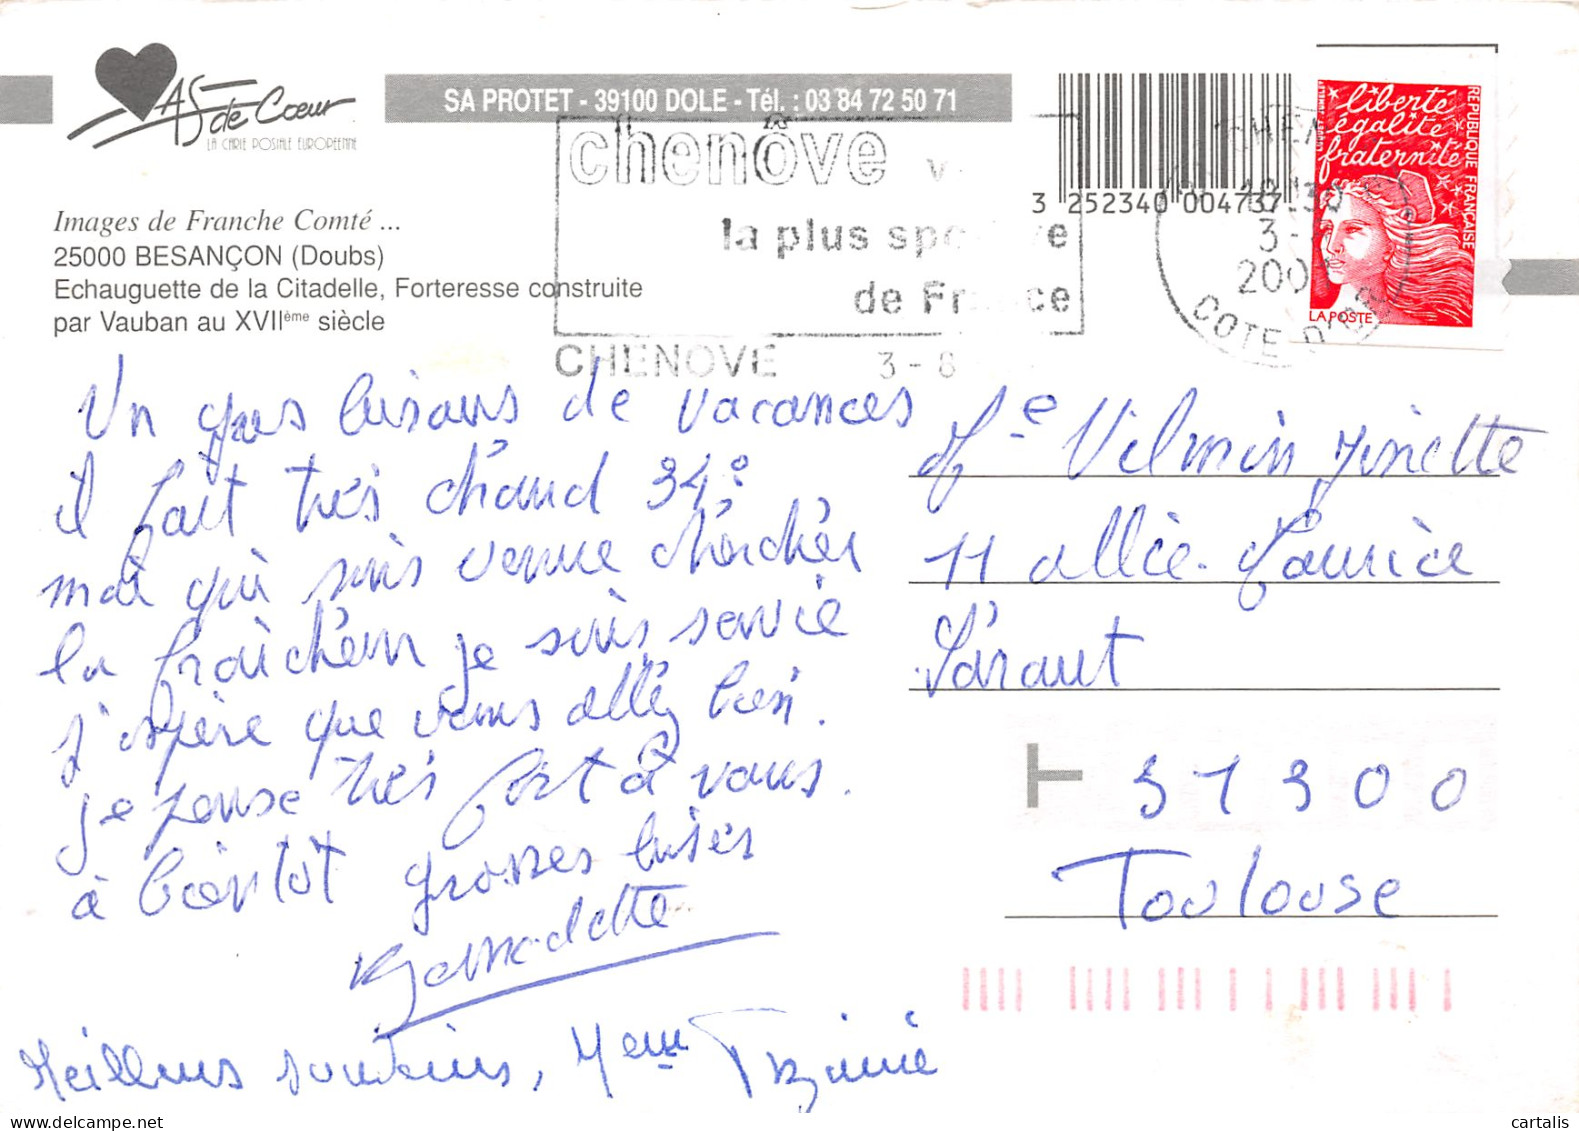 As de Cœur
LA CARTE POSTALE EUROPÉENNE
SA PROTET - 39100 DOLE - Tél. : 03 84 72 50 71
Images de Franche Comté ...
25000 BESANÇON (Doubs)
Echauguette de la Citadelle, Forteresse construite
par Vauban au XVIIème siècle
chenôve
la plus
de
CHENOVE 3-8
3 252340 004737
18H30
3-
COTE D'OR
liberté
égalité
fraternité
RÉPUBLIQUE FRANÇAISE
LA POSTE
Un gros bisous de vacances
il fait très chaud 34°
moi qui suis venue chercher
la fraicheur je suis servie
j'espère que vous allez bien.
je pense très fort à vous.
à bientôt grosses bises
Bernadette
Meilleurs souvenirs,
Me Vilmin Ginette
11 allée Maurice
Sarraut
31300
Toulouse
cartalis